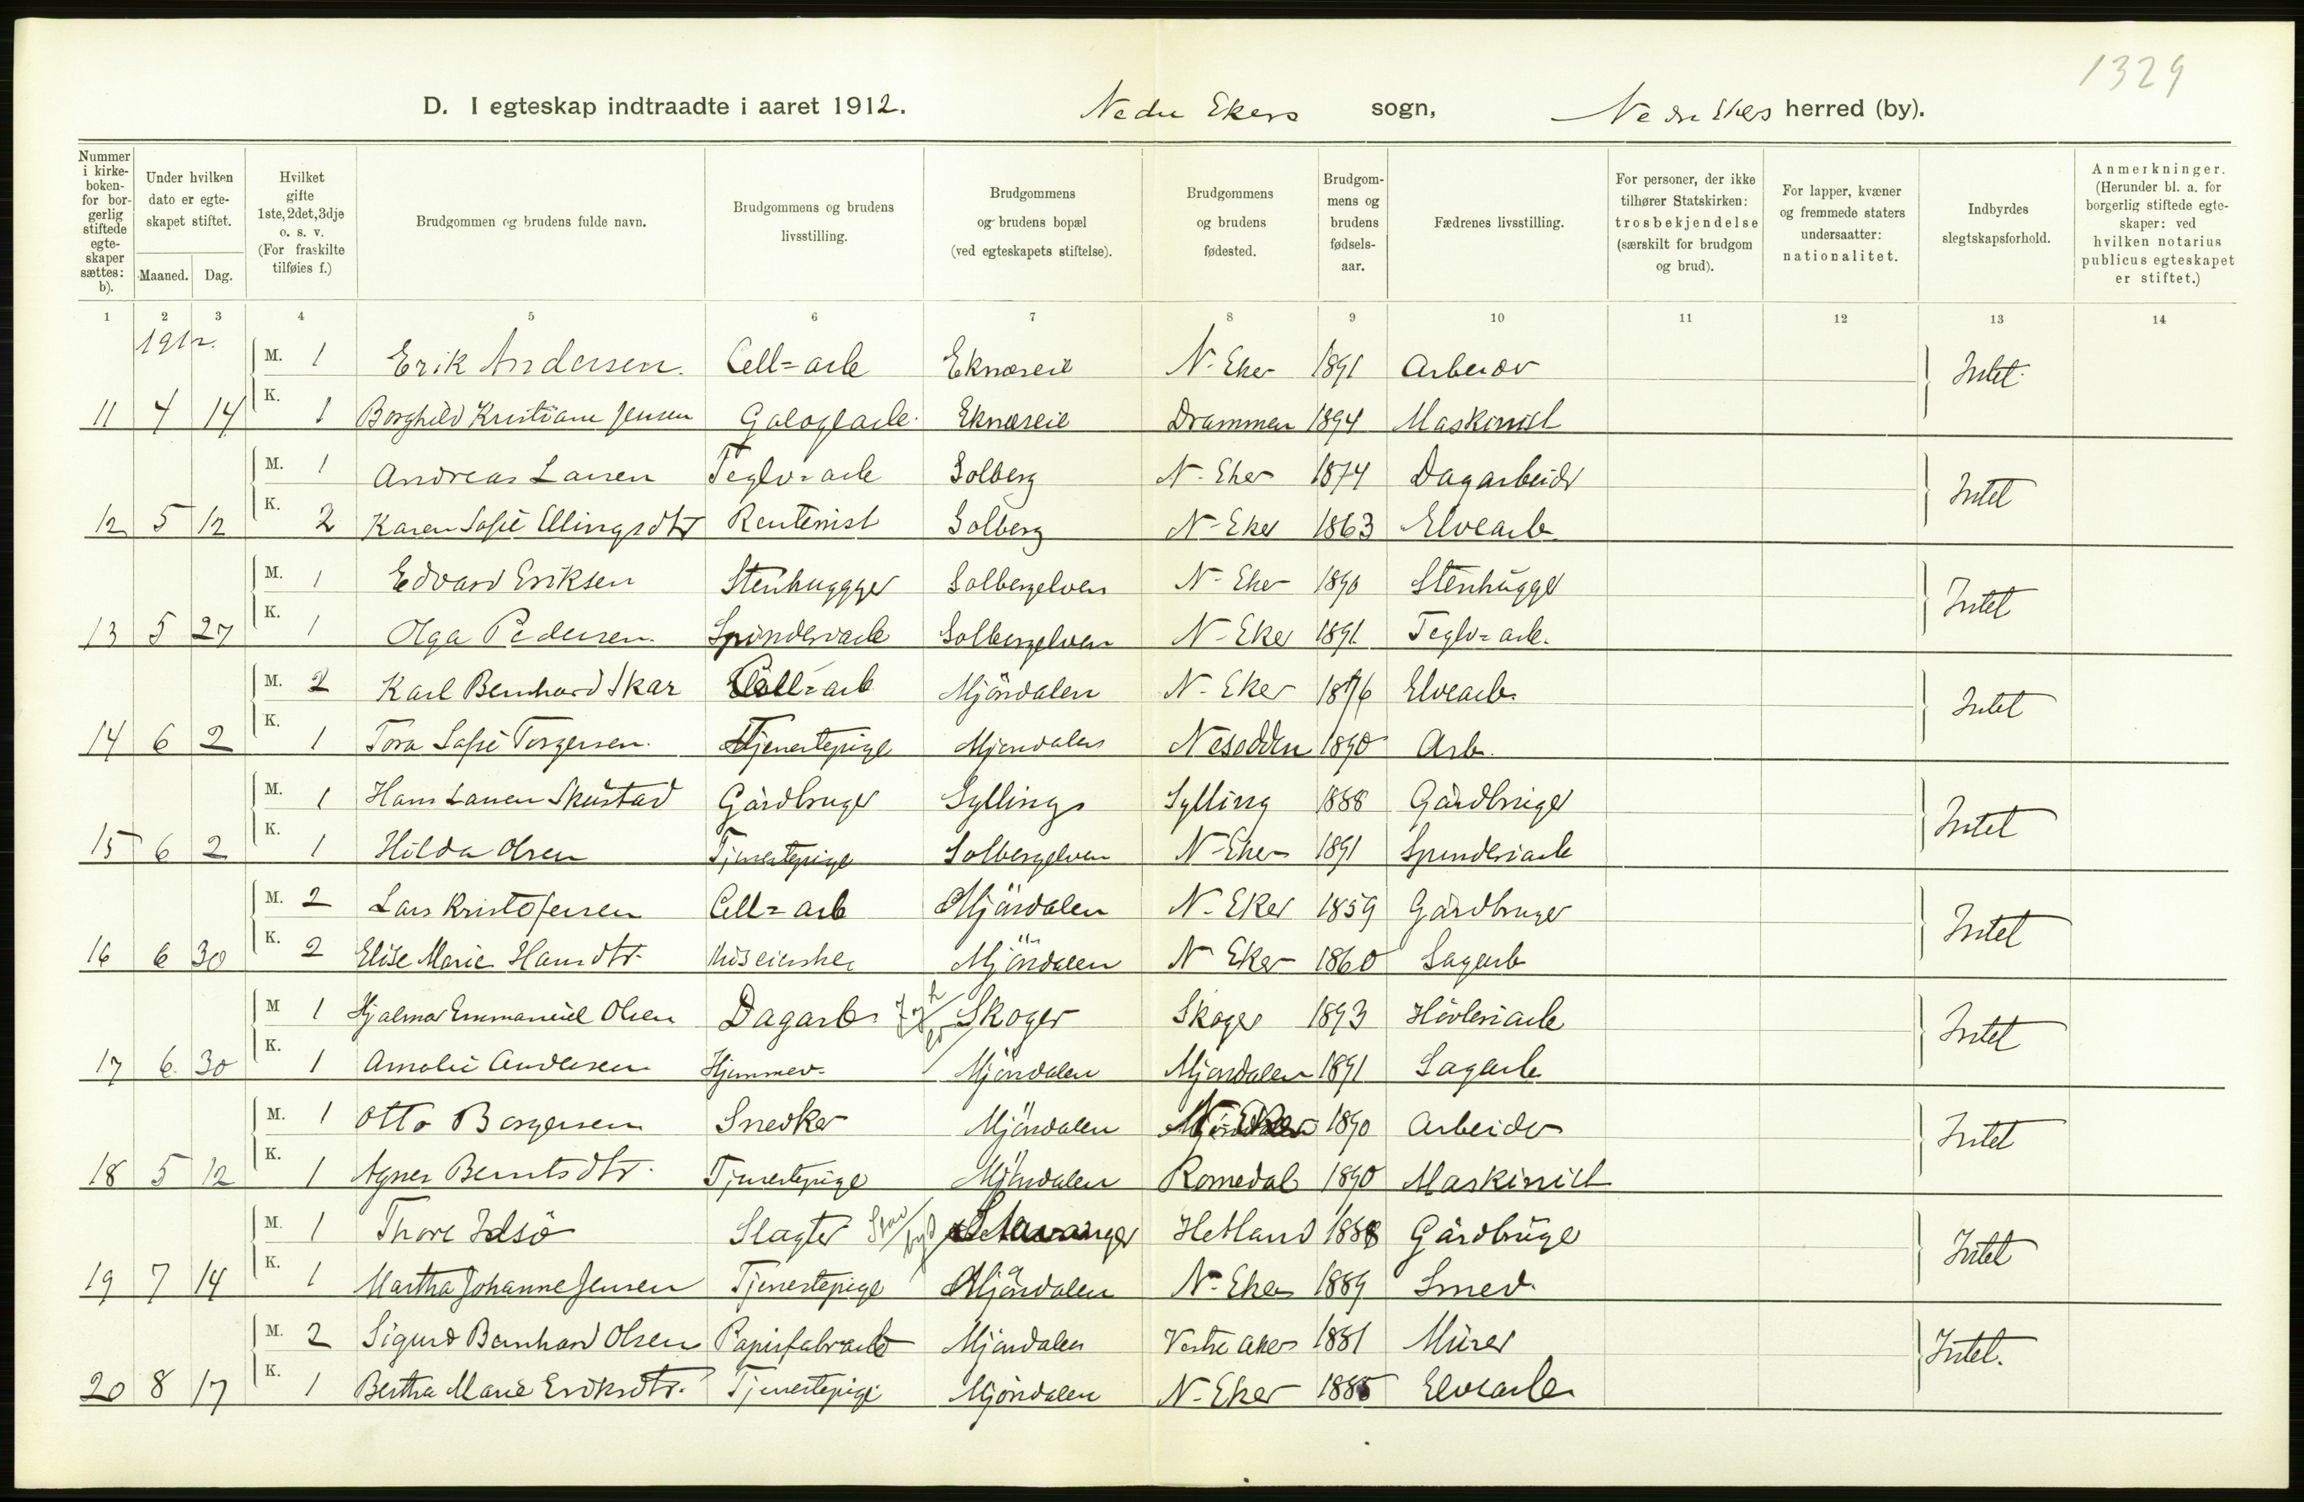 1329
D. I egteskap indtraadte i aaret 1912. Nedre Ekers sogn, Nedre Ekers herred (by).
Nummer i kirke-boken- for bor-gerlig stiftede egte-skaper sættes: b). Under hvilken dato er egte-skapet stiftet. Maaned. Dag. Hvilket gifte 1ste, 2det, 3dje o. s. v. (For fraskilte tilføies f.) Brudgommen og brudens fulde navn. Brudgommens og brudens livsstilling. Brudgommens og brudens bopæl (ved egteskapets stiftelse). Brudgommens og brudens fødested. Brudgom-mens og brudens fødsels-aar. Fædrenes livsstilling. For personer, der ikke tilhører Statskirken: trosbekjendelse (særskilt for brudgom og brud). For lapper, kvæner og fremmede staters undersaatter: nationalitet. Indbyrdes slegtskapsforhold. Anmerkninger. (Herunder bl. a. for borgerlig stiftede egte-skaper: ved hvilken notarius publicus egteskapet er stiftet.)
1 2 3 4 5 6 7 8 9 10 11 12 13 14
1912.
M. 1 Erik Andersen. Cell=arb Eknæseie N-Eker 1891 Arbeider Intet
11 4 14 K. 1 Borghild Kristiane Jensen Galogearb. Eknæseie Drammen 1894 Maskinist
M. 1 Andreas Larsen Teglv=arb Solberg N-Eker 1874 Dagarbeider Intet
12 5 12 K. 2 Karen Sofie Ellingsdtr Rentenist Solberg N-Eker 1863 Elvearb
M. 1 Edvard Eriksen Stenhuggger Solbergelven N-Eker 1890 Stenhugger Intet
13 5 27 K. 1 Olga Pedersen. Spinderiarb Solbergelven N-Eker 1891 Teglv=arb.
M. 2 Karl Bernhard Skar Cell=arb Mjöndalen N-Eker 1876 Elvearb. Intet
14 6 2 K. 1 Tora Sofie Torgersen. Tjenestepige Mjöndalen Nesodden 1890 Arb.
M. 1 Hans Larsen Skustad Gårdbruger Syllings Sylling 1888 Gårdbruger Intet
15 6 2 K. 1 Hilda Olsen Tjenestepige Solbergelven N-Eker 1891 Spinderiarb
M. 2 Lars Kristofersen Cell=arb Mjöndalen N-Eker 1859 Gårdbruger Intet
16 6 30 K. 2 Elise Marie Hansdtr. Huseierske Mjöndalen N Eker 1860 Sagarb
M 1 Hjalmar Emmanuel Olsen Dagarb. Skoger Skoger 1893 Hövleriarb Intet
17 6 30 K. 1 Amalie Andersen Hjemmev. Mjöndalen Mjondalen 1891 Sagarb
M. 1 Otto Borgersen Snedker Mjöndalen N Eker 1890 Arbeider Intet
18 5 12 K. 1 Agnes Berntsdtr. Tjenestepige Mjöndalen Romedal 1890 Maskinist
M. 1 Thore Idsö Slagter Stavanger Hetland 1888 Gårdbruger Intet
19 7 14 K. 1 Martha Johanne Jensen Tjenestepige Mjöndalen N-Eker 1889 Smed.
M. 2 Sigurd Bernhard Olsen Papirfabrarb Mjöndalen Vestre Aker 1881 Murer Intet.
20 8 17 K. 1 Bertha Marie Eriksdtr. Tjenestepige Mjöndalen N-Eker 1885 Elvearb